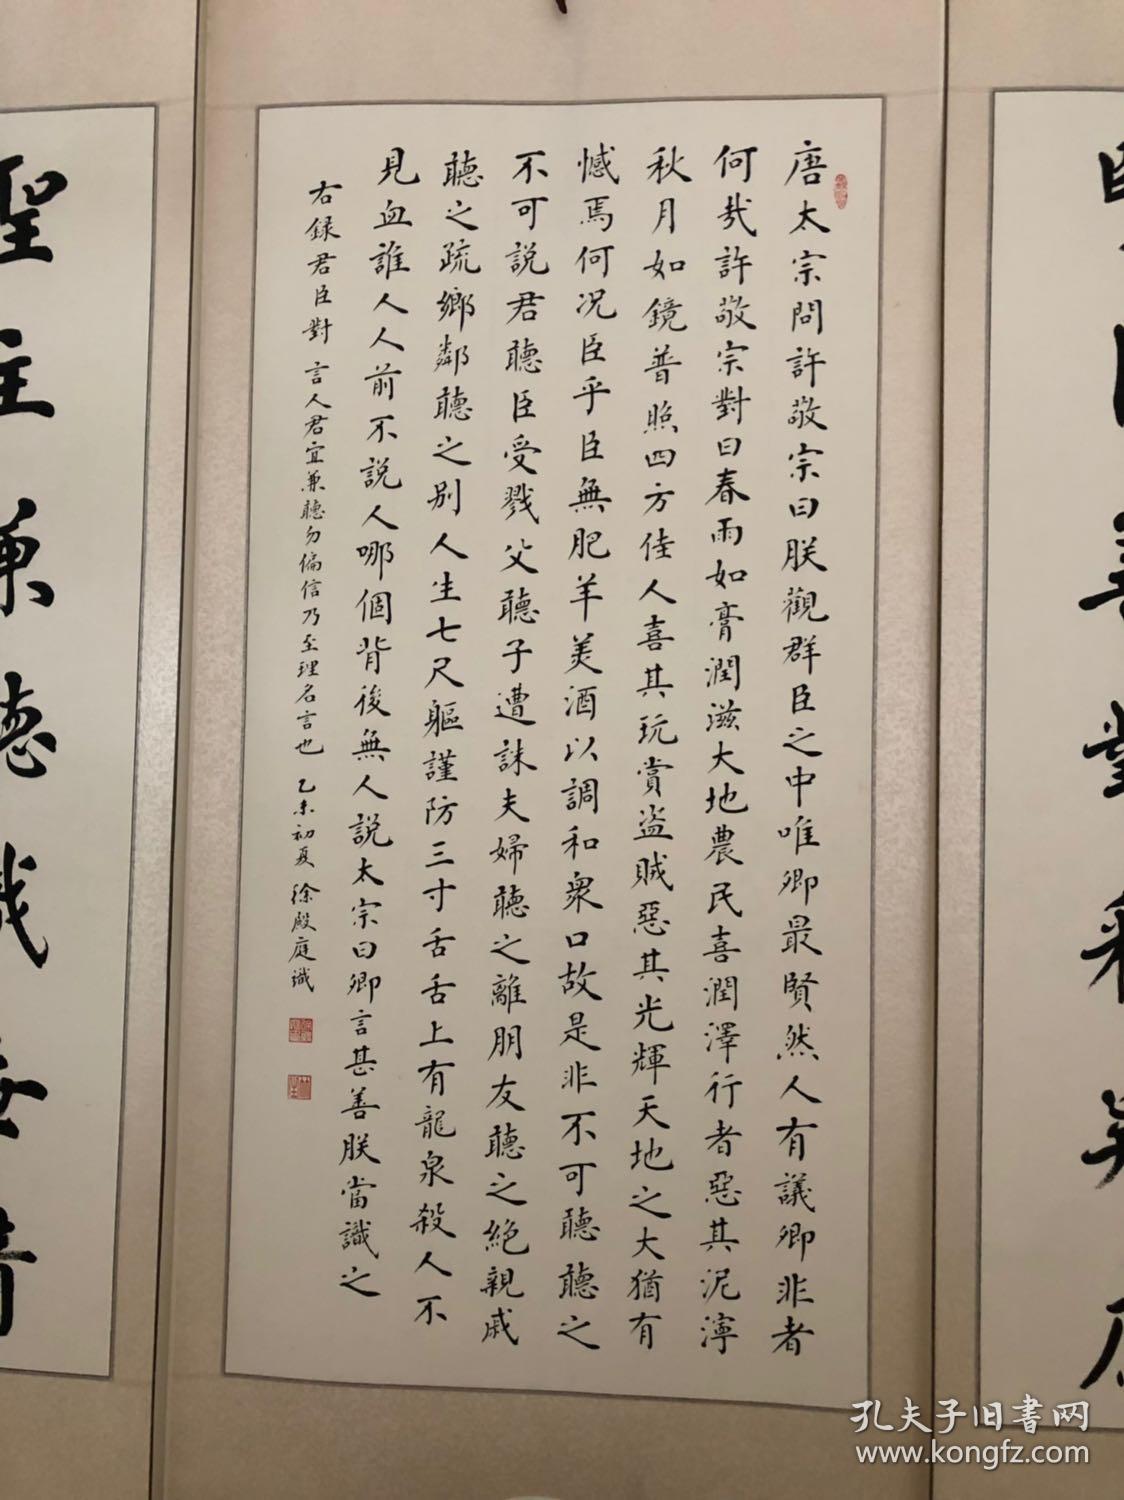 唐太宗問許敬宗曰朕觀群臣之中唯卿最賢然人有議卿非者
何哉許敬宗對曰春雨如膏潤滋大地農民喜潤澤行者惡其泥濘
秋月如鏡普照四方佳人喜其玩賞盗賊惡其光輝天地之大猶有
憾焉何况臣乎臣無肥羊美酒以調和衆口故是非不可聽聽之
不可説君聽臣受戮父聽子遭誅夫婦聽之離朋友聽之絶親戚
聽之疏鄉鄰聽之别人生七尺軀謹防三寸舌舌上有龍泉殺人不
見血誰人人前不説人哪個背後無人説太宗曰卿言甚善朕當識之
右録君臣對 言人君宜兼聽勿偏信乃至理名言也 乙未初夏 徐殿庭識
聖主兼聽識
孔夫子旧书网
www.kongfz.com